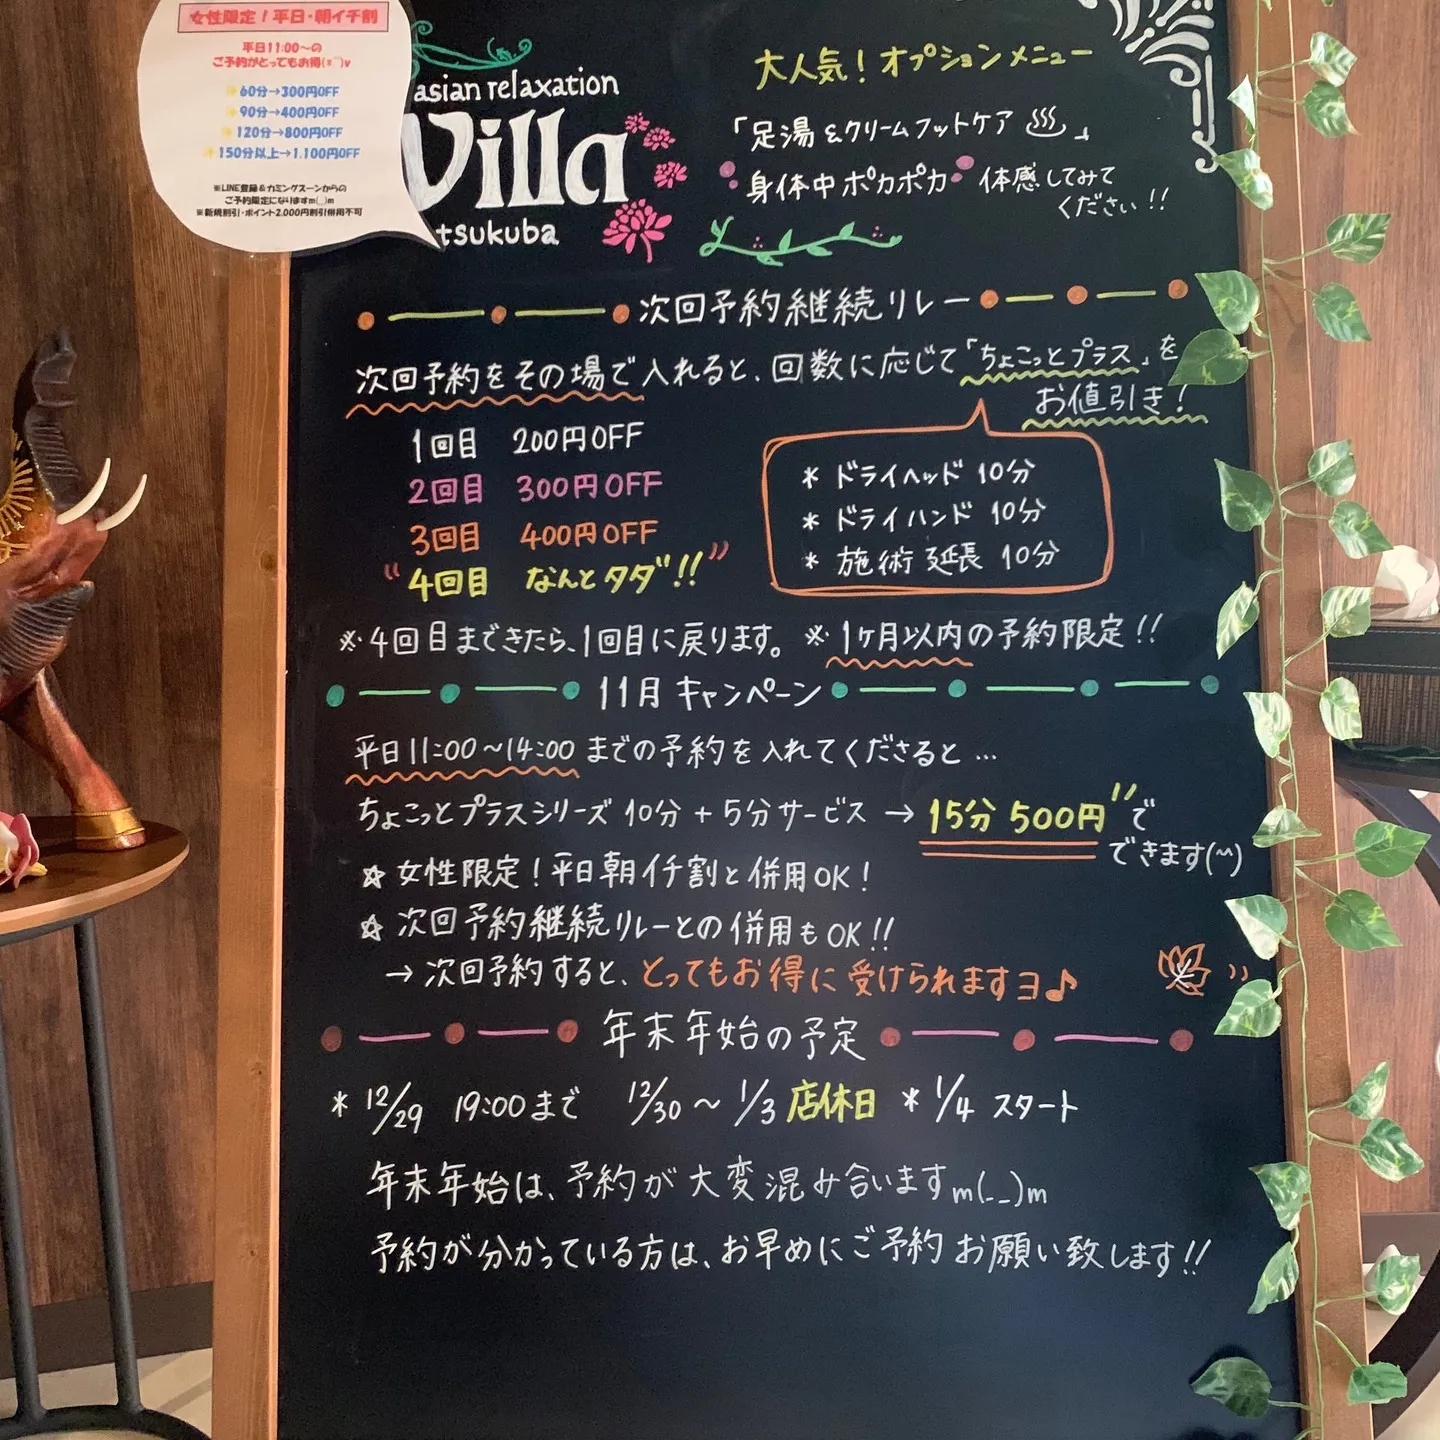 女性限定！平日・朝イチ割
平日11:00～の
ご予約がとってもお得(=^^)v
60分→300円OFF
90分→400円OFF
120分→800円OFF
150分以上→1,100円OFF
※LINE登録&カミングスーンからの
ご予約限定になりますm(__)m
※新規割引・ポイント2,000円割引併用不可
asian relaxation
Villa
tsukuba
大人気！オプションメニュー
「足湯&クリームフットケア♨」
身体中ポカポカ 体感してみて
ください!!
次回予約継続リレー
次回予約をその場で入れると、回数に応じて「ちょこっとプラス」を
お値引き！
1回目 200円OFF
2回目 300円OFF
3回目 400円OFF
"4回目 なんとタダ!!"
* ドライヘッド 10分
* ドライハンド 10分
* 施術延長 10分
※4回目まできたら、1回目に戻ります。 ※1ヶ月以内の予約限定!!
11月キャンペーン
平日11:00～14:00までの予約を入れてくださると…
ちょこっとプラスシリーズ10分+5分サービス→15分500円で
できます(^^)
☆女性限定！平日朝イチ割と併用OK！
☆次回予約継続リレーとの併用もOK!!
→次回予約すると、とってもお得に受けられますヨ♪
年末年始の予定
* 12/29 19:00まで 12/30～1/3店休日 *1/4 スタート
年末年始は、予約が大変混み合いますm(__)m
予約が分かっている方は、お早めにご予約お願い致します!!